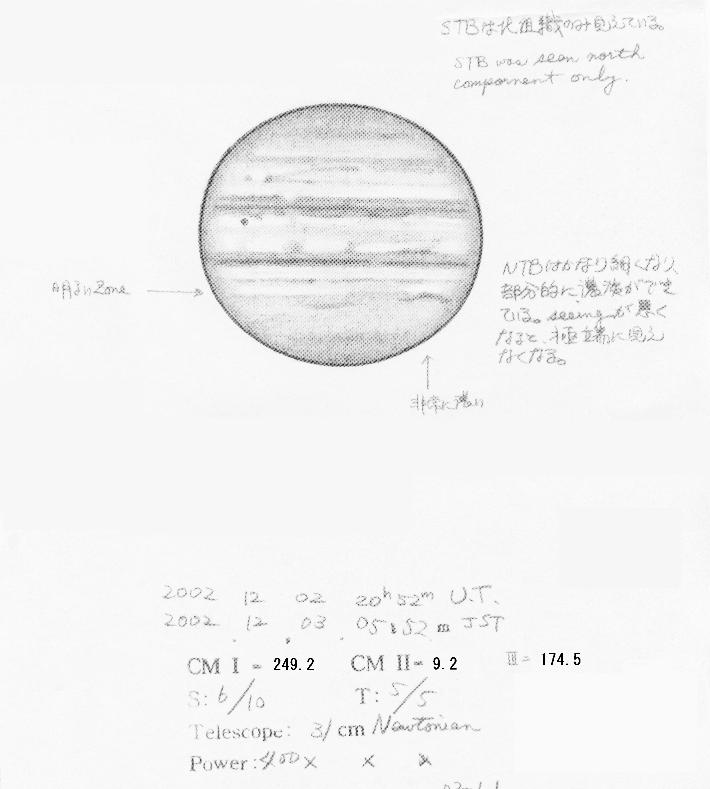 STBは北組織のみ見えている。
STB was seen north
compornent only.
明るいZone
NTBはかなり細くなり、
部分的に濃淡ができ
ている。seeingが悪く
なると、極端に見え
なくなる。
非常に濃い
2002 12 02 20h 52m U.T.
2002 12 03 05 52 m JST
CM I = 249.2 CM II = 9.2 III = 174.5
S: 6/10 T: 5/5
Telescope: 31 cm Newtonian
Power: 400 × × ×